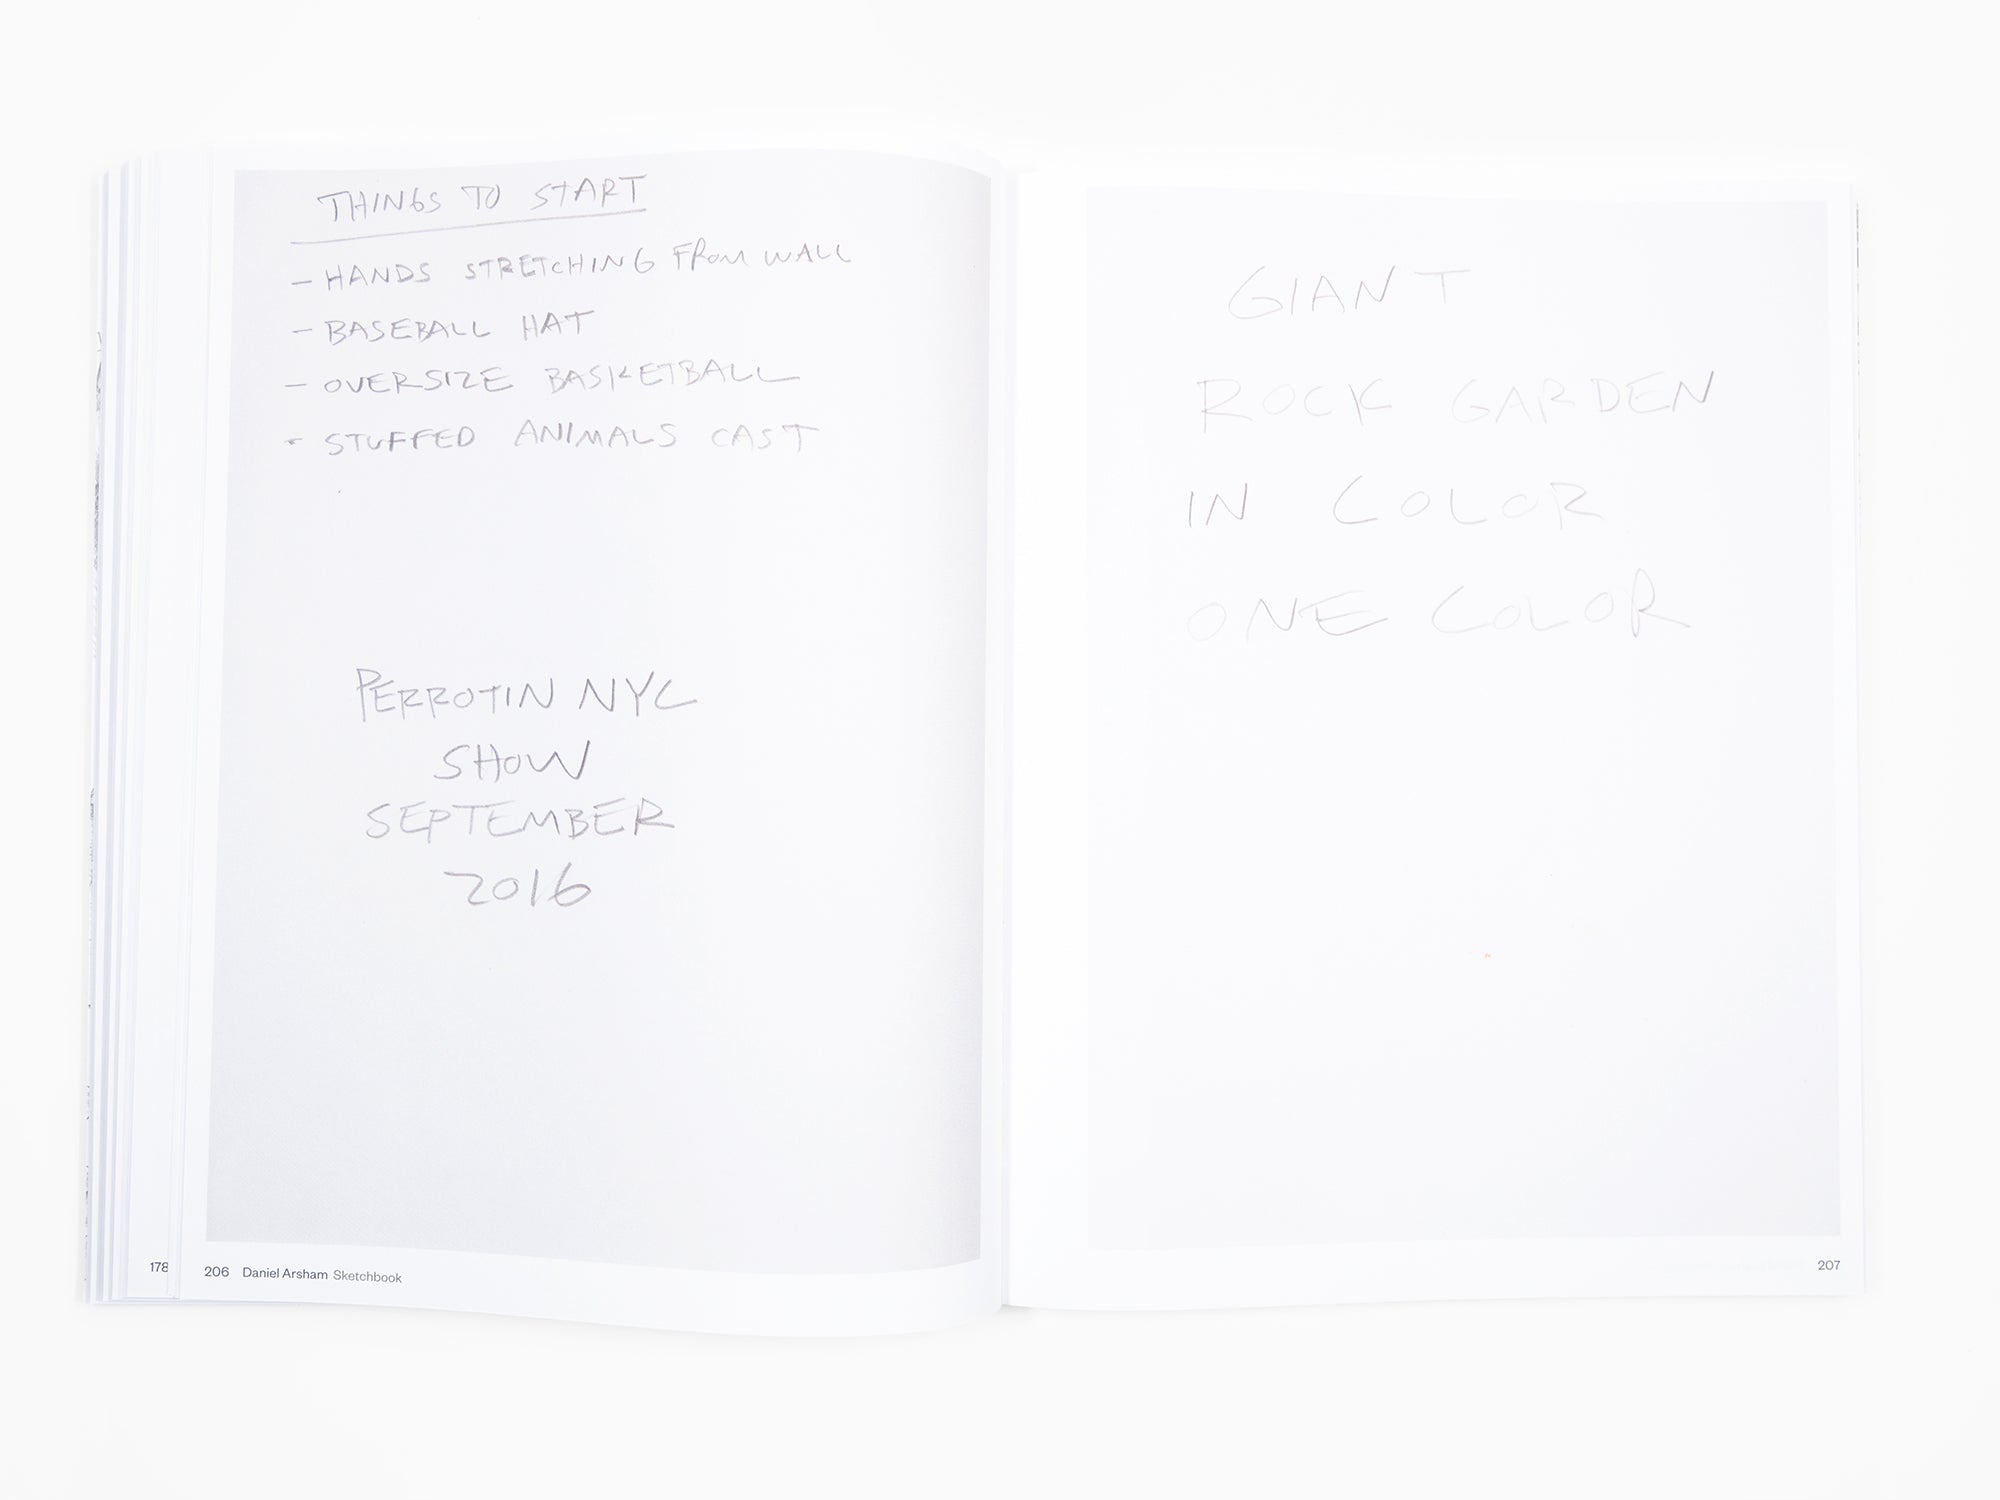 THINGS TO START
– HANDS STRETCHING FROM WALL
– BASEBALL HAT
– OVERSIZE BASKETBALL
- STUFFED ANIMALS CAST
PERROTIN NYC
SHOW
SEPTEMBER
2016
178
206 Daniel Arsham Sketchbook
GIANT
ROCK GARDEN
IN COLOR
ONE COLOR
207